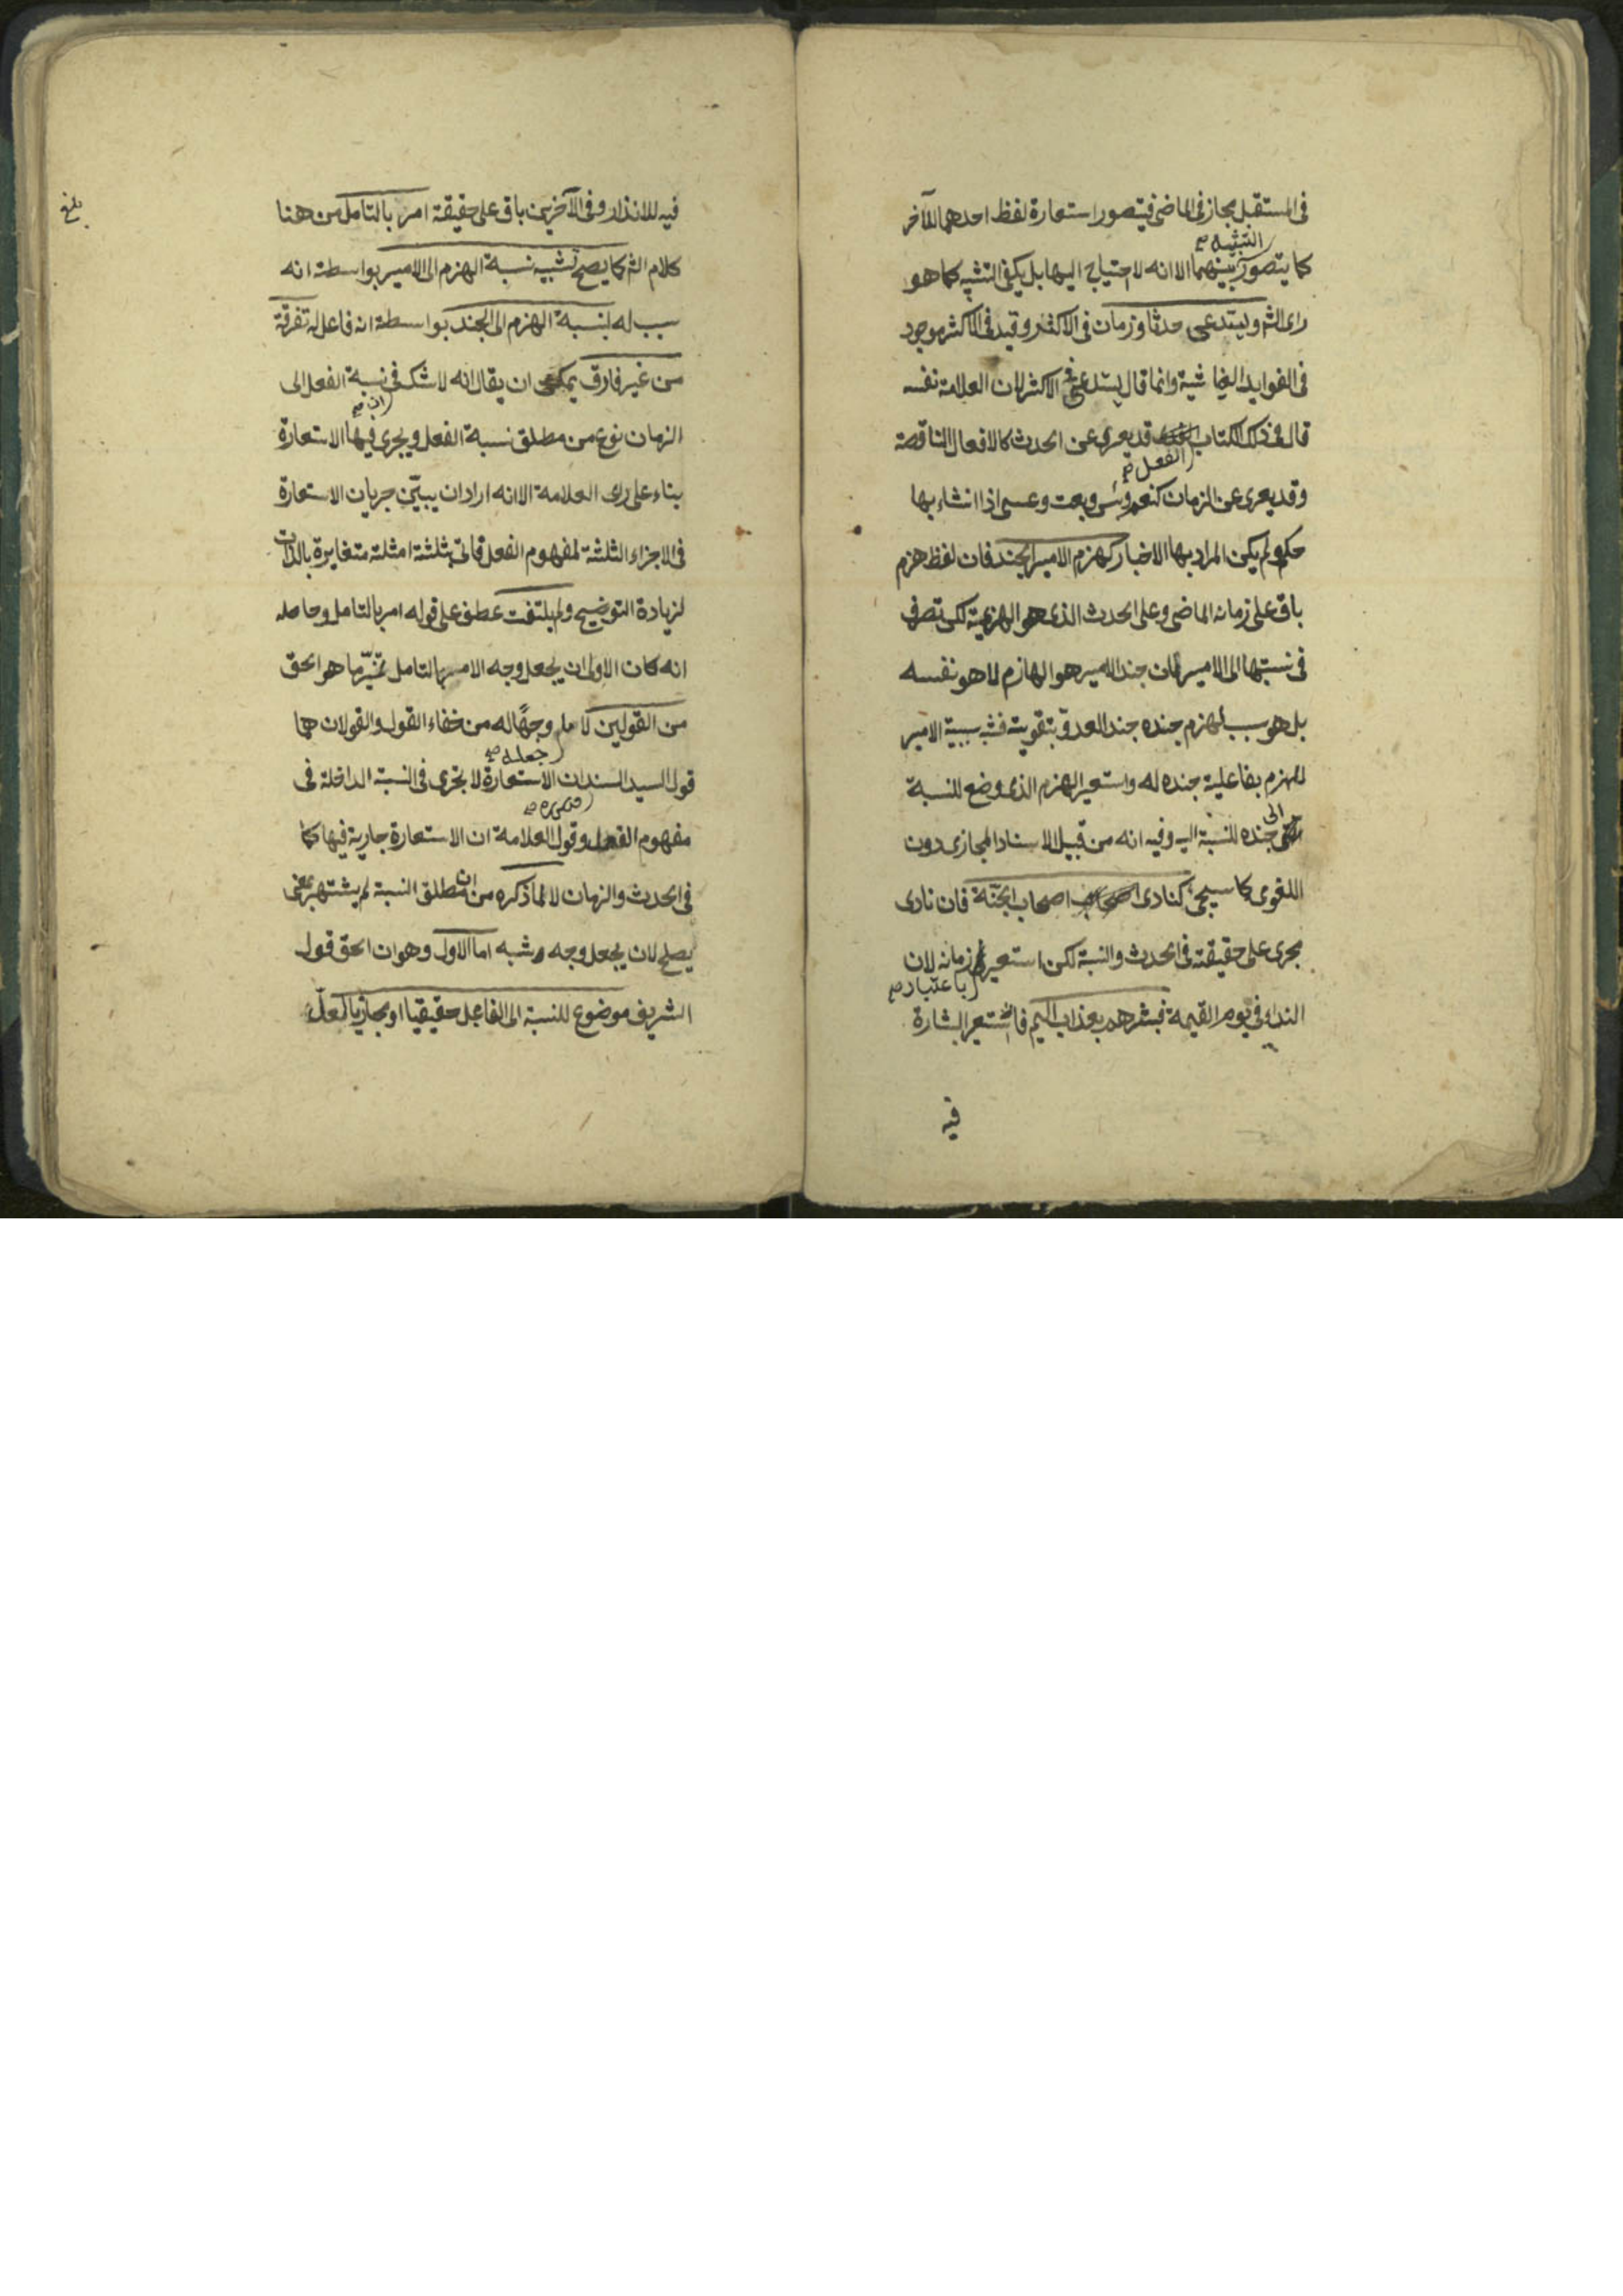 فى المستقبل مجاز فى الماضى فيتصور استعارة لفظ احدهما للآخر
كما يتصور التشبيه صح بينهما الا انه لا احتياج اليها بل يكفى التشبيه كما هو
راى الشم ويستدعى حدثا وزمان فى الاكثر وقيد فى الاكثر موجود
فى الفوايد الغياثية وانما قال يستدعى فى الاكثر لان العلامة نفسه
قال فى ذلك الكتاب قد يعرى عن الحدث كالافعال الناقصة
وقد يعرى الفعل صح عن الزمان كنعم وبئس وبعت وعسى اذا انشاء بها
حكم ولم يكن المراد بها الاخبار كهزم الامير الجند فان لفظ هزم
باق على زمانه الماضى وعلى الحدث الذى هو الهزيمة لكن تصرف
فى نسبتها الى الامير فان جند الامير هو الهازم لا هو نفسه
بل هو سبب لهزم جنده جند العدو بتقويته فشبه سببية الامير
للهزم بفاعلية جنده له واستعير الهزم الذى وضع للنسبة
الى جنده للنسبة اليه وفيه انه من قبيل الاسناد المجازى دون
اللغوى كما سيجئ كنادى اصحاب الجنة فان نادى
مجرى على حقيقته فى الحدث والنسبة لكن استعير زمانه لان
النداء فى يوم القيمة فبشرهم بعذاب اليم فاستعير البشارة باعتبار صح
فيه
فيه للانذار وفى الآخرين باق على حقيقة امر بالتامل من هنا
بلغ
كلام الشم كما يصح تشبيه نسبة الهزم الى الامير بواسطة انه
سبب له بنسبة الهزم الى الجند بواسطة انه فاعل له تفرقة
من غير فارق يمكن ان يقال انه لا شك فى نسبة الفعل الى
الزمان نوع من مطلق نسبة الفعل ويجرى فيها الاستعارة
بناء على راى العلامة الا انه اراد ان يبيّن جريان الاستعارة
فى الاجزاء الثلثة لمفهوم الفعل فاتى بثلثة امثلة متغايرة بالذات
لزيادة التوضيح ولم يلتفت عطف على قوله امر بالتامل وحاصله
انه كان الاولى ان يجعل وجه الامر بالتامل تميّز ما هو الحق
من القولين لا ما جعله صح وجهًا له من خفاء القول والقولان هما
قول السيد السند ان الاستعارة لا تجرى فى النسبة الداخلة فى
مفهوم الفعل وقول العلامة ان الاستعارة جارية فيها كما
فى الحدث والزمان لا لما ذكره من ان مطلق النسبة لم يشتهر بمعنى
يصلح لان يجعل وجه شبه اما الاول وهو ان الحق قول
الشريف موضوع للنسبة الى الفاعل حقيقيا او مجازيا لعل